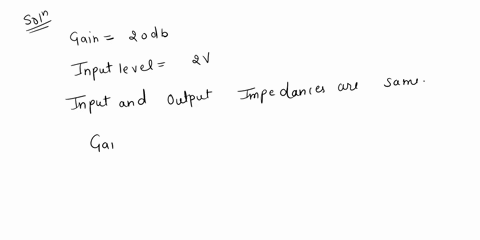 Soln
Gain = 20db
Input level = 2V
Input and Output Impedances are same.
Gai